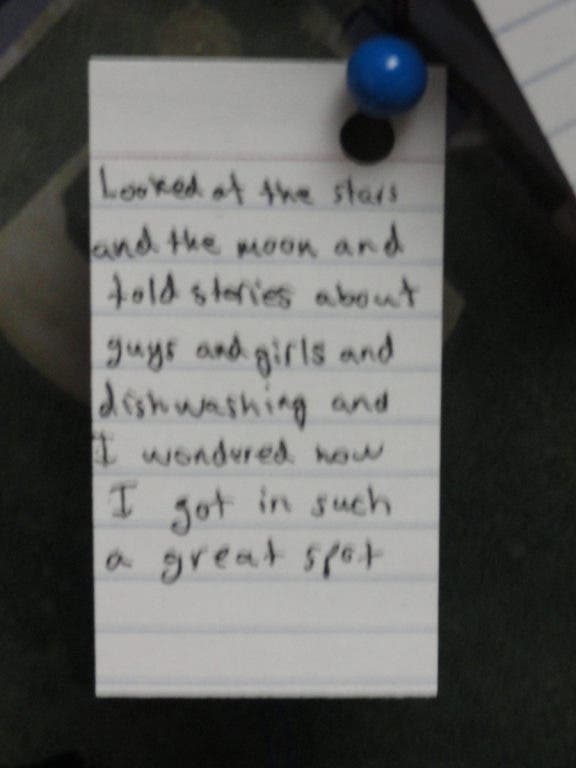 Looked at the stars
and the moon and
told stories about
guys and girls and
dishwashing and
I wondered how
I got in such
a great spot